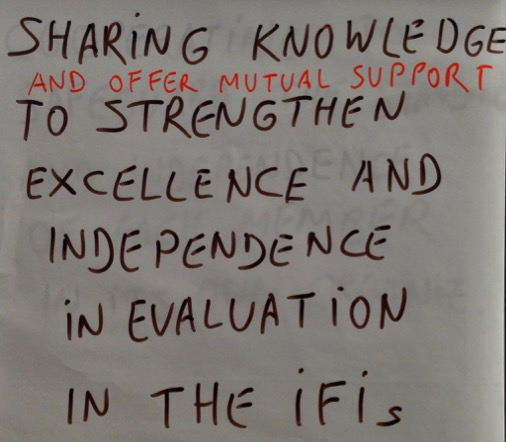 SHARiNG KNOWLEDGE
AND OFFER MUTUAL SUPPORT
TO STRENGTHEN
EXCELLENCE AND
INDEPENDENCE
iN EVALUATiON
IN THE iFis